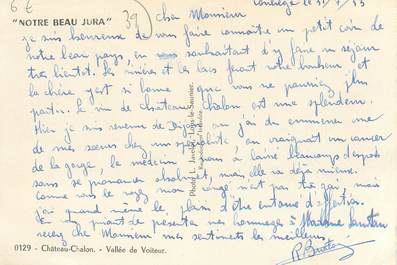 6 €
39
"NOTRE BEAU JURA"
le 31/7/53
Cher Monsieur
je suis heureux de vous faire connaître un petit coin de
notre beau pays, en souhaitant d'y faire un séjour
très bientôt. Les rivières et les lacs feront votre bonheur et
la chère y est si bonne que vous ne pourriez plus
partir. Le vin de château Chalon est une splendeur.
Hier je suis revenu de Dijon où j'ai du emmener une
de mes sœurs chez un spécialiste, on craignait un cancer
de la gorge, le médecin nous a laissé beaucoup d'espoir
sans se prononcer absolument, mais elle va déjà mieux.
Comme vous le voyez mon congé n'est pas très gai, mais
j'ai quand même le plaisir d'être entouré d'
En vous priant de présenter mes hommages à Madame
recevez cher Monsieur mes sentiments les meilleurs.
Photo L. Jacquier, Lons-le-Saunier.
0129 - Château-Chalon. - Vallée de Voiteur.